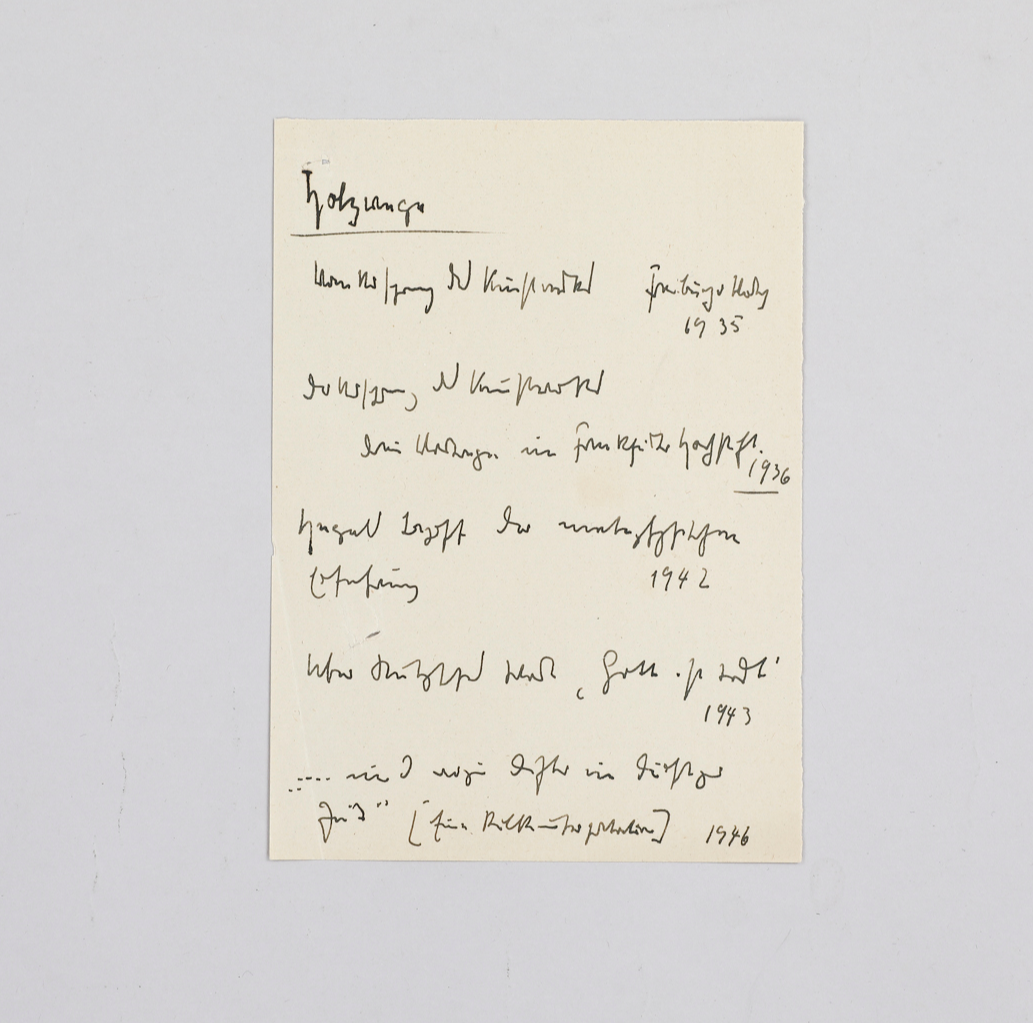 Holzwege
Vom Ursprung des Kunstwerkes Freiburger Vortrag
1935
Der Ursprung des Kunstwerkes
drei Vorträge im Frankfurter Hochstift.
1936
Hegels Begriff der metaphysischen
Erfahrung 1942
Über Nietzsches Wort „Gott ist todt"
1943
..... und wozu Dichter in dürftiger
Zeit" [Eine Rilkeinterpretation] 1946